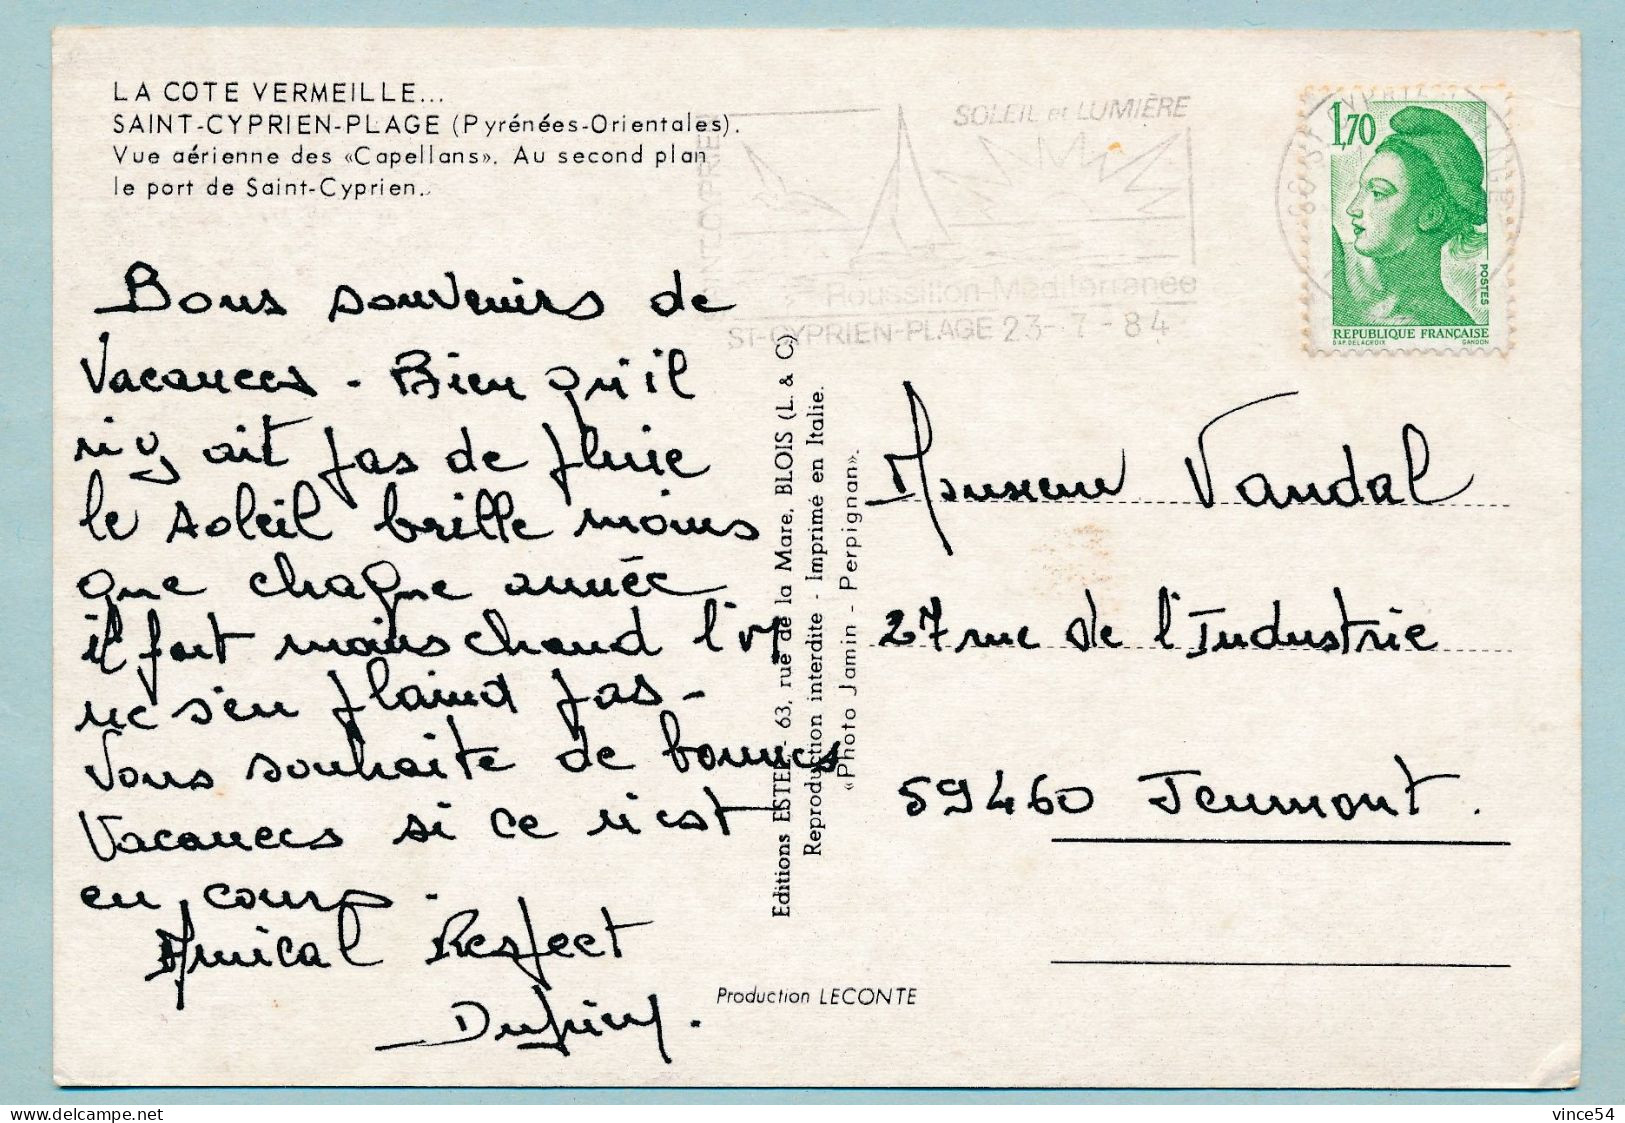 LA COTE VERMEILLE...
SAINT-CYPRIEN-PLAGE (Pyrénées-Orientales).
Vue aérienne des «Capellans». Au second plan
le port de Saint-Cyprien.
SOLEIL et LUMIÈRE
SAINT-CYPRIEN
Roussillon-Méditerranée
ST-CYPRIEN-PLAGE 23-7-84
1,70
POSTES
REPUBLIQUE FRANÇAISE
D'AP. DELACROIX GANDON
Bons souvenirs de
Vacances - Bien qu'il
n'y ait pas de pluie
le soleil brille moins
que chaque année
il fait moins chaud l'on
ne s'en plaind pas -
Vous souhaite de bonnes
Vacances si ce n'est
en cours.
Amical Respect
Editions ESTEL - 63, rue de la Mare, BLOIS (L. & C)
Reproduction interdite - Imprimé en Italie.
«Photo Jamin - Perpignan».
Production LECONTE
Monsieur Vandal
27 rue de l'Industrie
59460 Jeumont.
delcampe.net
vince54